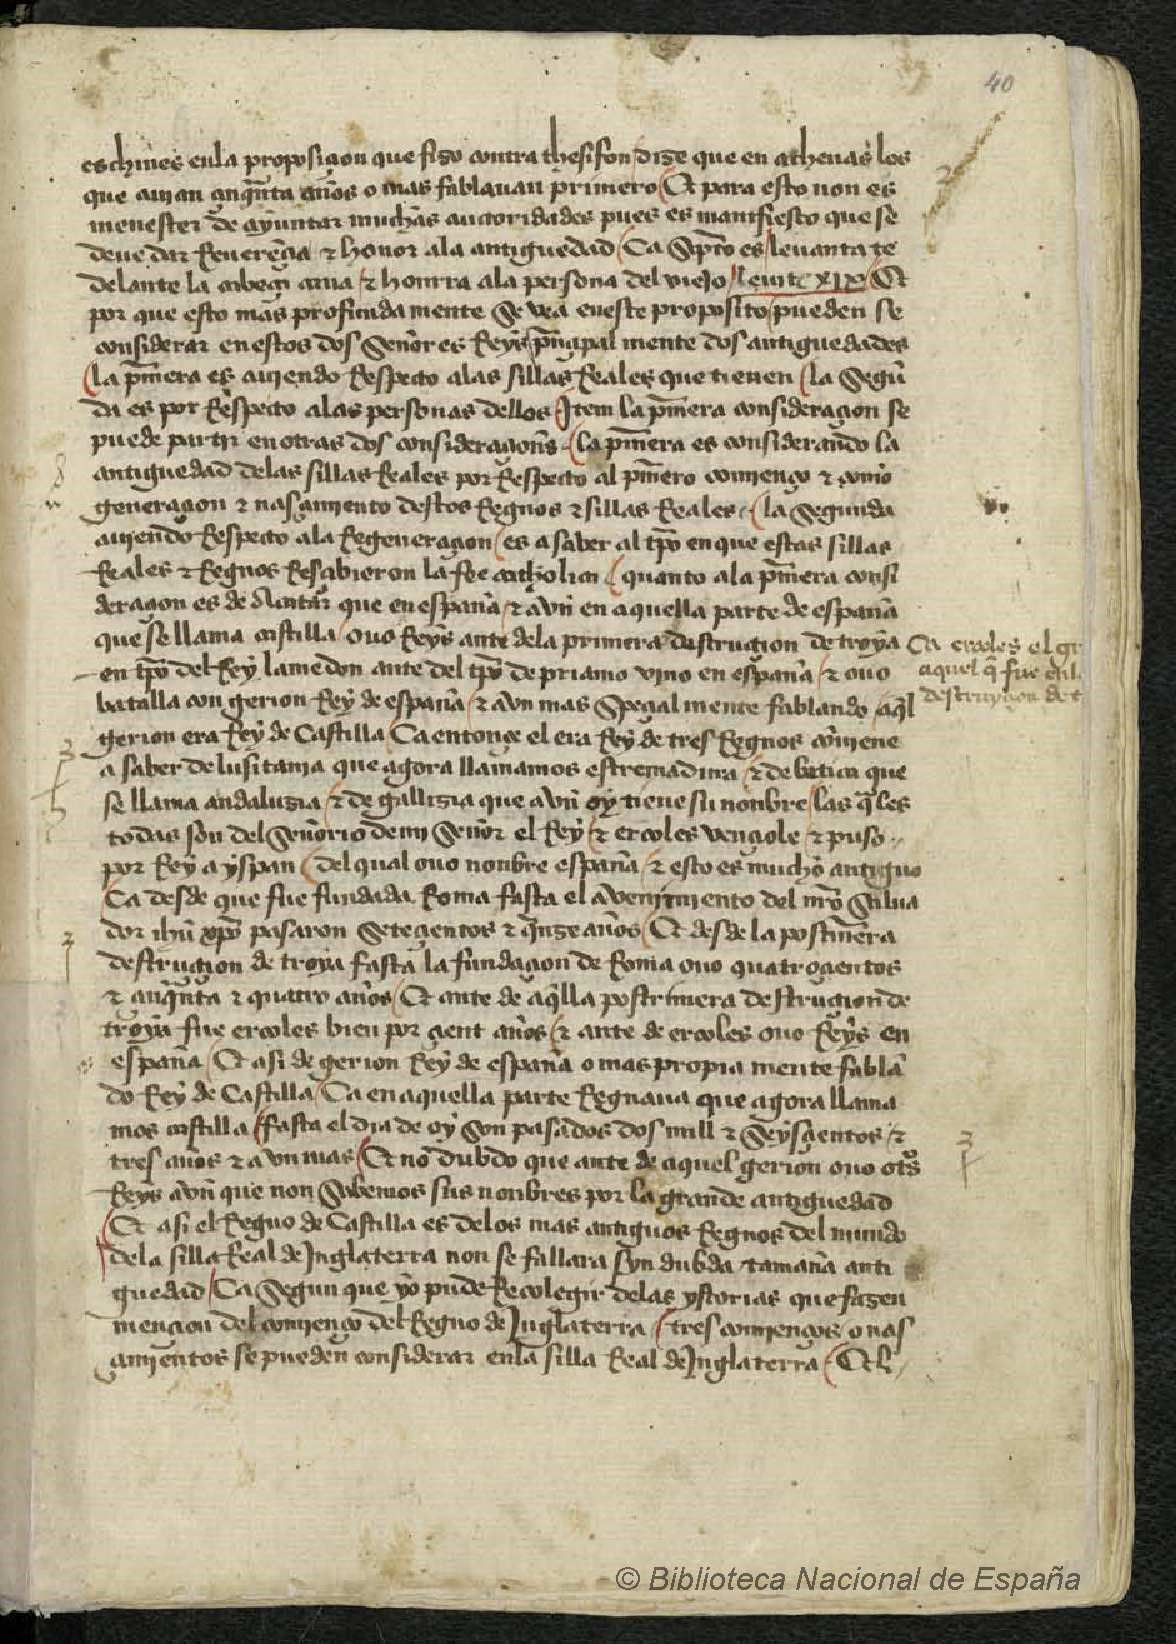 40
eschines enla proposiçion que fizo contra thesifon dize que en athenas los
que auian çinq̃nta años o mas fablauan primero Et para esto non es
menester de ayuntar muchas auctoridades pues es manifiesto que se
deue dar Reuerẽçia & honor ala antiguedad Ca sc̃pto es leuanta te
delante la cabeça cana & honrra ala persona del viejo leuit̃ xix Et
por que esto mas profunda mente se vea eneste proposito pueden se
considerar en estos dos señores Reys prĩnçipal mente dos antiguedades
la prĩmera es auiendo Respecto alas sillas Reales que tienen la segũ
da es por Respecto alas personas dellos Item la prĩmera consideraçion se
puede partir en otras dos consideraçioñs la prĩmera es considerando la
antiguedad delas sillas Reales por Respecto al prĩmero comienço & como
generaçion & nasçimiento destos Regnos & sillas Reales la segunda
auiendo Respecto ala Regeneraçion es a saber al tp̃o en que estas sillas
Reales & Regnos Resçibieron la fee catholica quanto ala prĩmera consi
deraçion es de notar que en españa & avñ en aquella parte de españa
que se llama castilla ouo Reys ante dela primera destruçion de troya
Ca ercoles el
aquel q̃ fue
destruyçion de
en tp̃o del Rey lamedon ante del tp̃o de priamo vino en españa & ouo
batalla con gerion Rey de españa & avn mas speçial mente fablando aq̃l
gerion era Rey de Castilla Ca entonçe el era Rey de tres Regnos cõuiene
a saber de lusitania que agora llamamos estremadura & de betica que
se llama andaluzia & de gallizia que avñ oy tiene su nonbre las q̃les
todas son del señorio de mi señor el Rey & ercoles vençiole & puso
por Rey a yspan del qual ouo nonbre españa & esto es mucho antiguo
Ca desde que fue fundada Roma fasta el avenimiento del nr̃o salua
dor ihũ xp̃o pasaron seteçientos & q̃nze años Et desde la postrimera
destruçion de troya fasta la fundaçion de Roma ouo quatroçientos
& çinq̃nta & quatro años Et ante de aq̃lla postrimera destruçion de
troya fue ercoles bien por çient años & ante de ercoles ouo Reys en
españa Et asi de gerion Rey de españa o mas propia mente fablã
do Rey de Castilla Ca en aquella parte Regnaua que agora llama
mos castilla fasta el dia de oy son pasados dos mill & seysçientos &
tres años & avn mas Et no dubdo que ante de aquel gerion ouo otr̃os
Reys avñ que non sabemos sus nonbres por la grande antiguedad
Et asi el Regno de Castilla es delos mas antiguos Regnos del mundo
dela silla Real de Inglaterra non se fallara syn dubda tamaña anti
guedad Ca segun que yo pude Recolegir delas ystorias que fazen
mençion del comienço del Regno de Inglaterra tres comienços o nas
çimientos se pueden considerar enla silla Real de Inglaterra
© Biblioteca Nacional de España